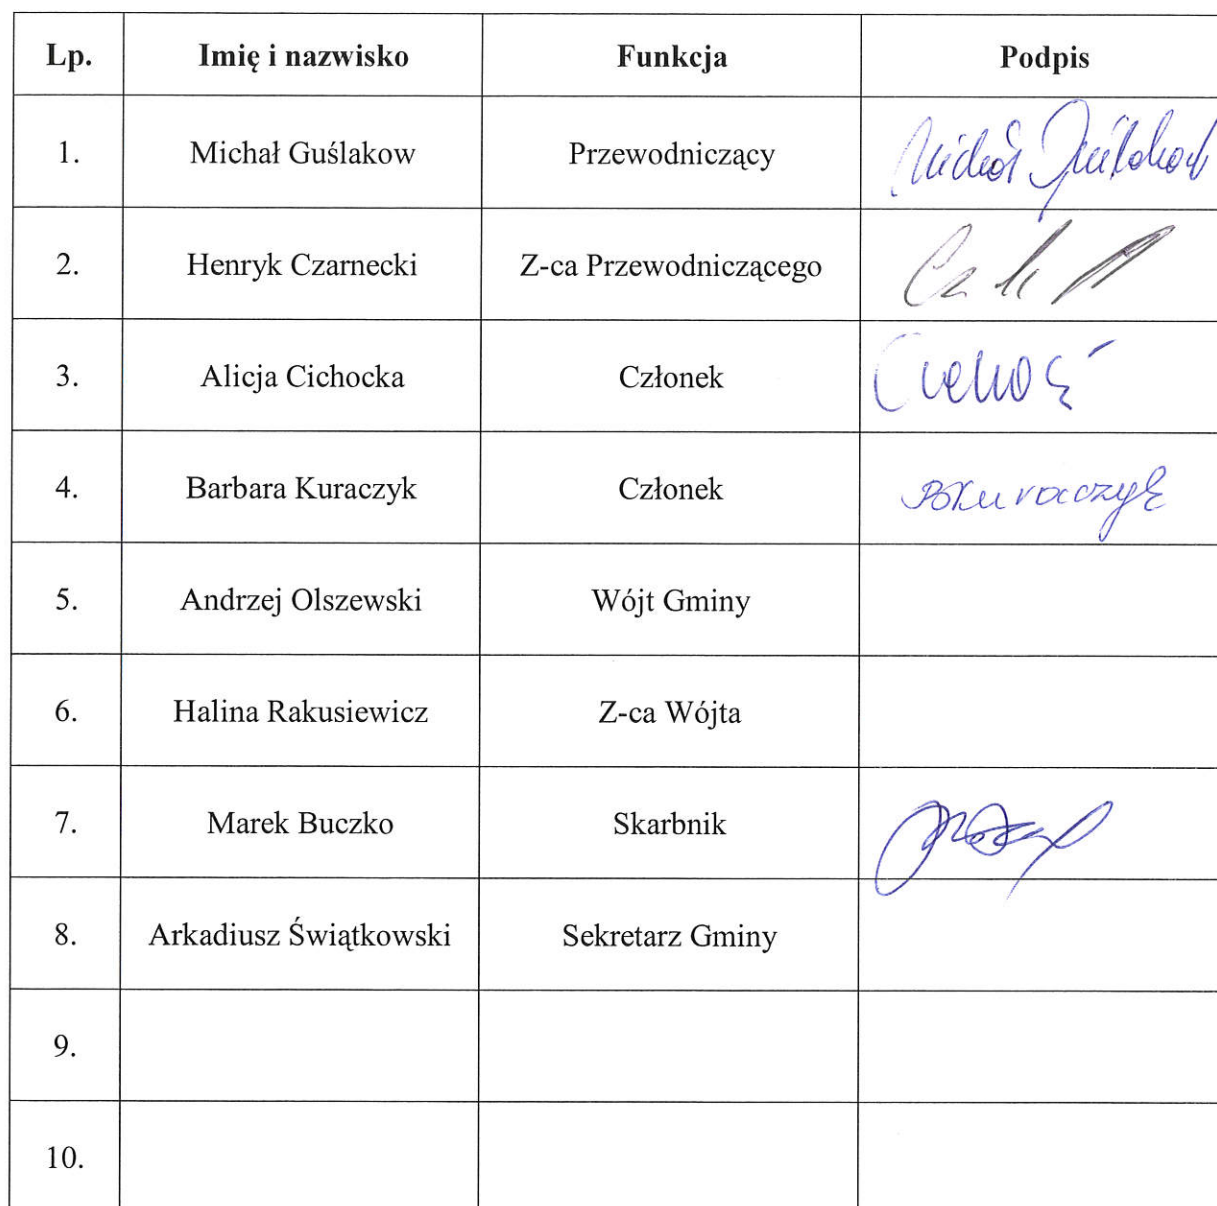 Lp. Imię i nazwisko Funkcja Podpis
1. Michał Guślakow Przewodniczący Michał Guślakow
2. Henryk Czarnecki Z-ca Przewodniczącego
3. Alicja Cichocka Członek
4. Barbara Kuraczyk Członek BKuraczyk
5. Andrzej Olszewski Wójt Gminy
6. Halina Rakusiewicz Z-ca Wójta
7. Marek Buczko Skarbnik
8. Arkadiusz Świątkowski Sekretarz Gminy
9.
10.